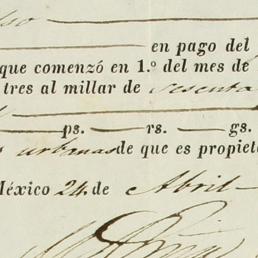 so
en pago del
que comenzó en 1.º del mes de
tres al millar de sesenta
ps. rs. gs.
urbanas de que es propiet
México 24 de Abril